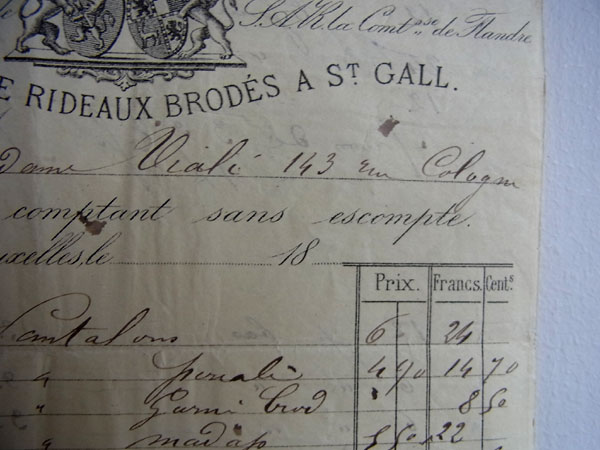 S.A.R. la Comtesse de Flandre
E RIDEAUX BRODÉS A ST GALL.
dame Viali 143 rue Cologne
comptant sans escompte.
uxelles, le 18
Prix. Francs. Cents
Pantalons 6 24
" percale 4 90 14 70
" Garni brod 8 50
" madap 5 50 22